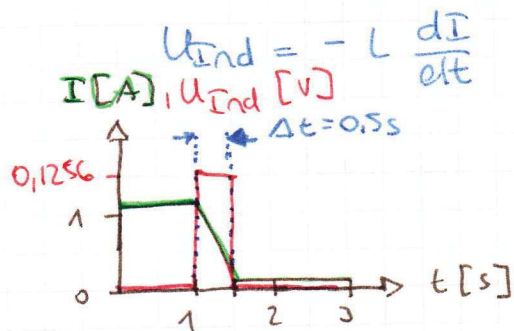 U_Ind = - L dI/dt
I[A], U_Ind [V]
Δt=0.5s
0,1256
1
0
1 2 3
t [s]